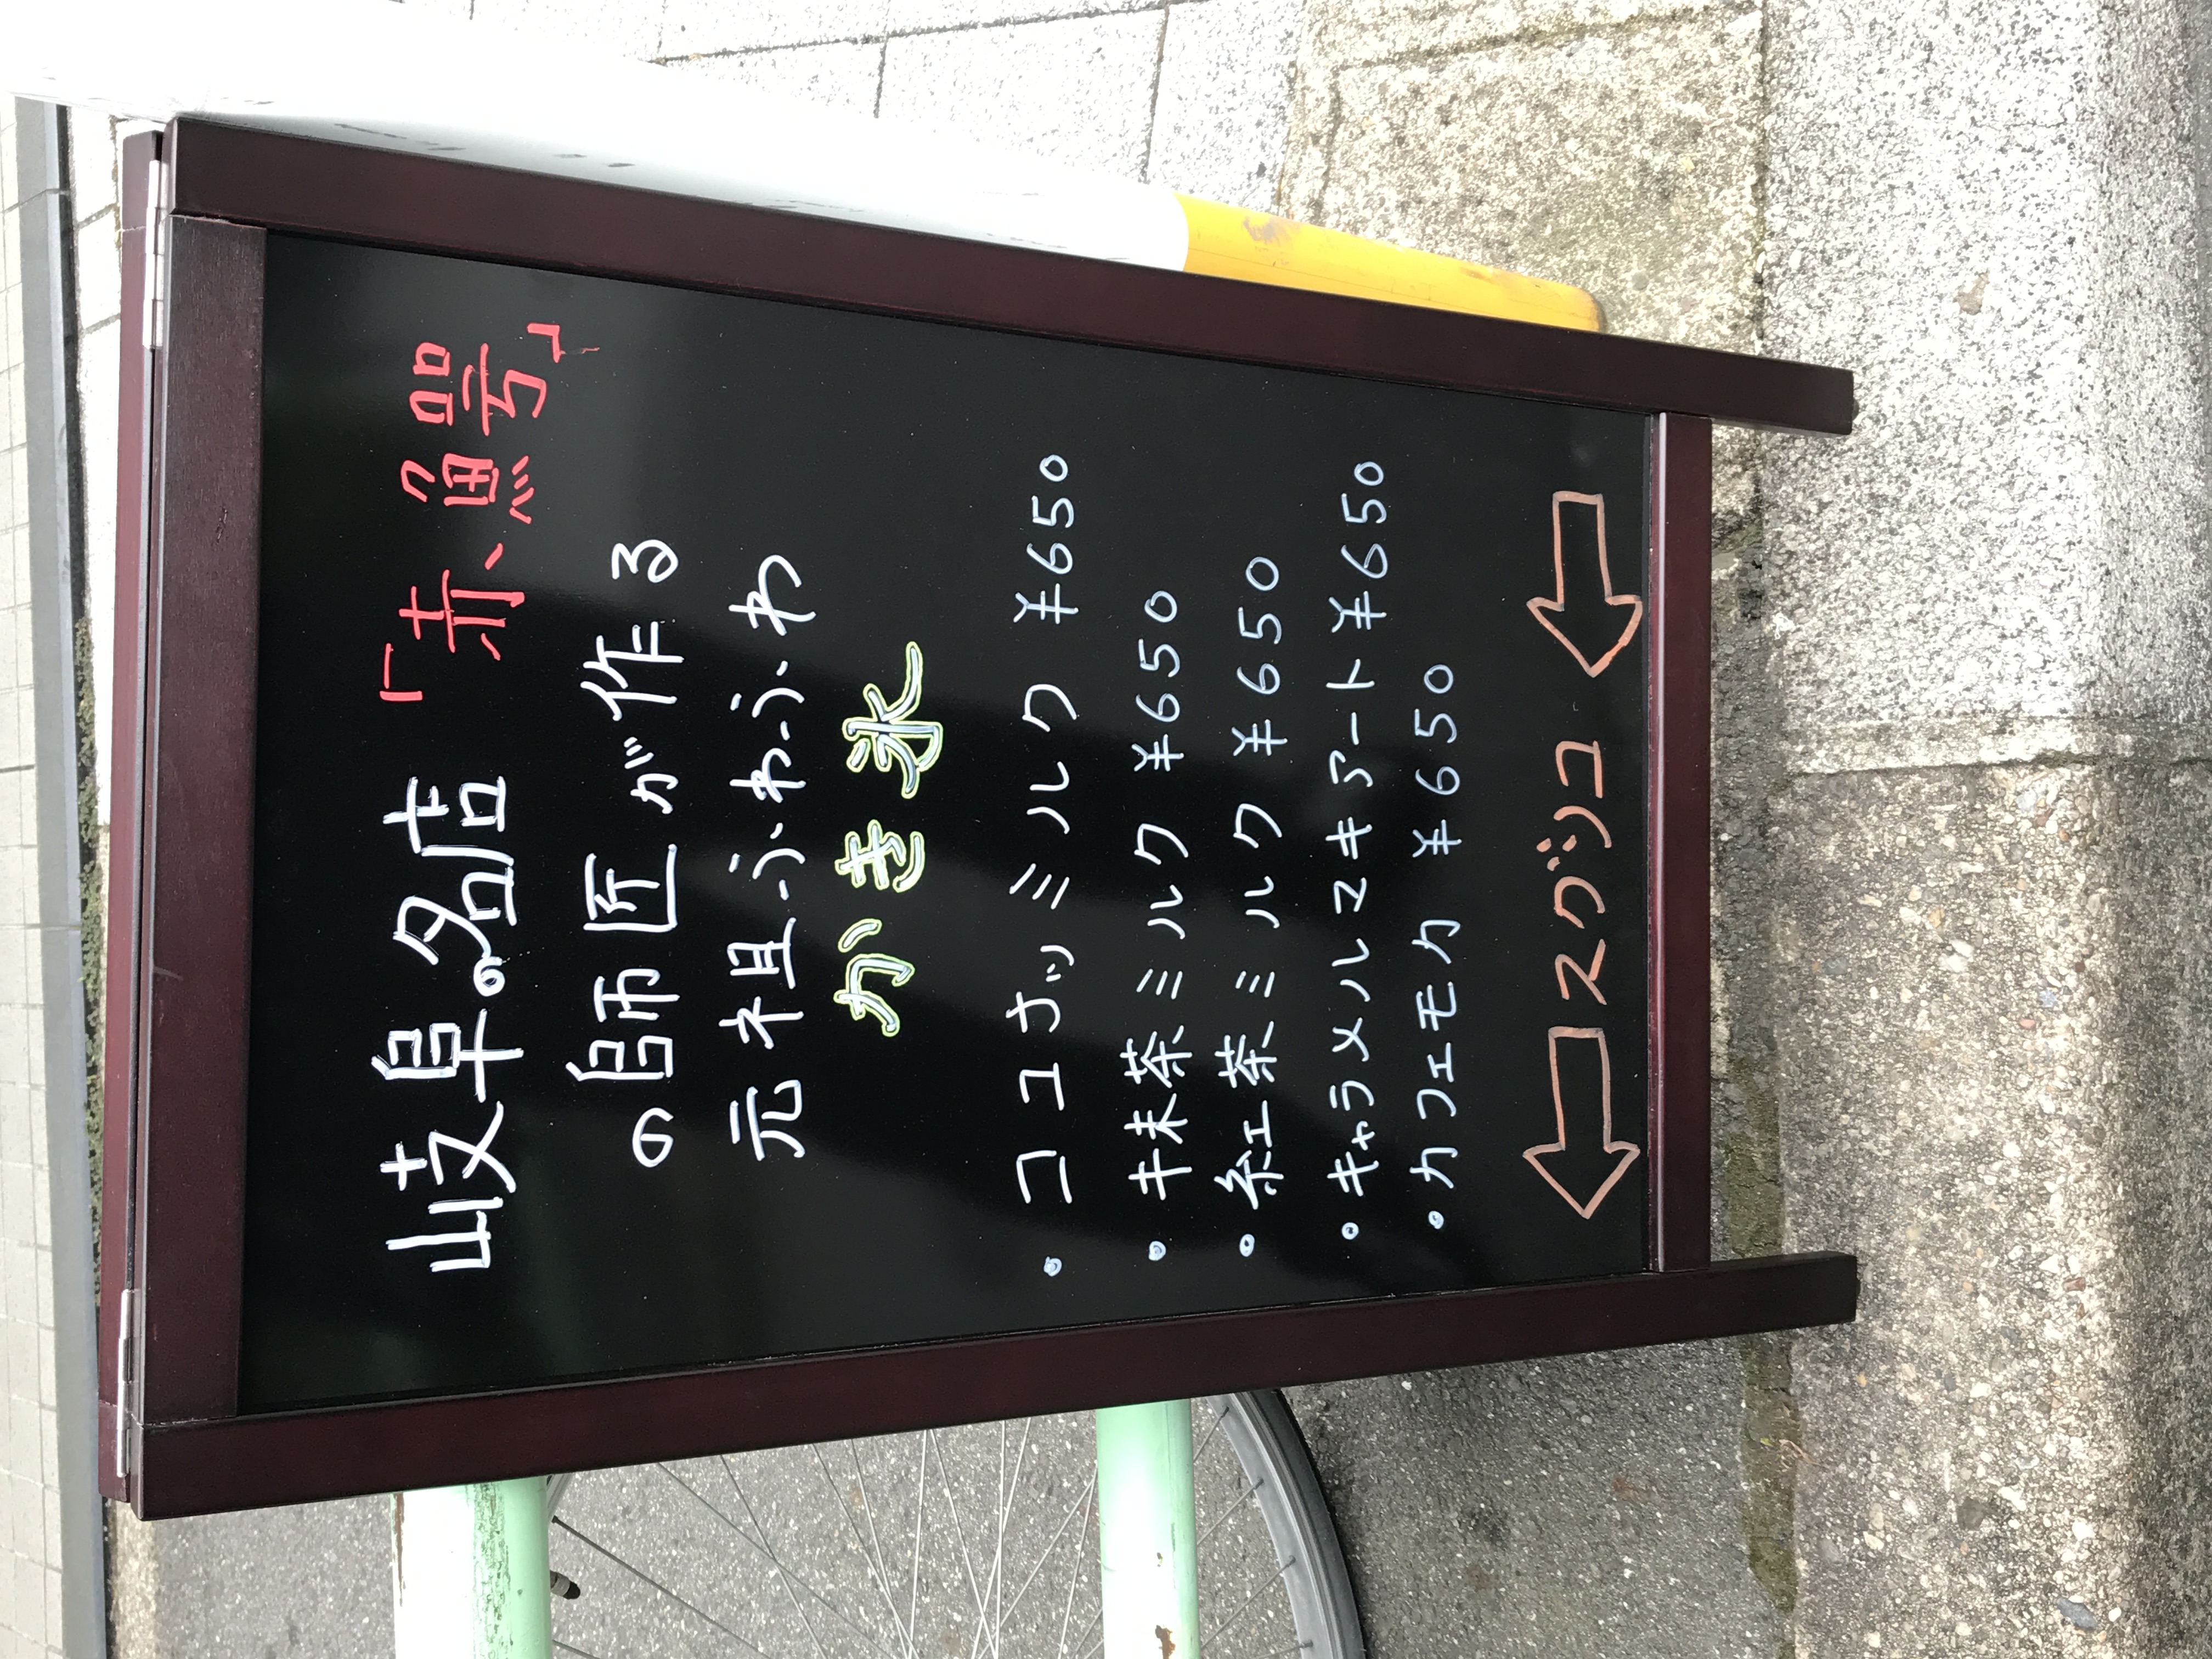 岐阜の名店「赤鰐」
の師匠が作る
元祖ふわふわ
かき氷
・ココナッミルク ¥650
・抹茶ミルク ¥650
・紅茶ミルク ¥650
・キャラメルマキアート ¥650
・カフェモカ ¥650
スグソコ